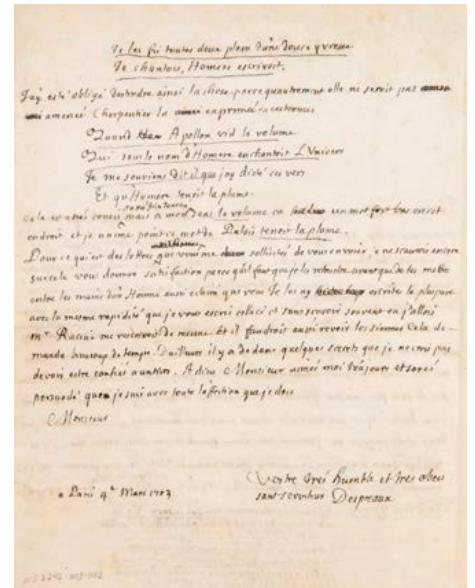 Je les fis toutes deux plein d'une douce yvresse
Je chantois, Homere escrivoit.
J'ay esté obligé d'estendre ainsi la chose parce qu'autrement elle ne seroit pas
amenée Charpentier l'a exprimée en ces termes
Quand Apollon vid le volume
Qui sous le nom d'Homere enchantoit L'Univers
Je me souviens dit il que j'ay dicté ces vers
Et qu'Homere tenoit la plume.
cela est assés concis mais a mon sens le volume en un mot fort bas en cet
endroit et je n'aime point ce mot de Palais tenoit la plume.
Pour ce qui est des lettres que vous me sollicités de vous envoier je ne sçaurois encore
sur cela vous donner satisfaction parce qu'il faut que je les retouche avant que de les mettre
entre les mains d'un Homme aussi eclairé que vous Je les ay escrites la pluspart
avec la mesme rapidité que je vous escris celle ci et sans sçavoir souvent ou j'allois
Mr. Racine me rescrivoit de mesme Et il faudroit aussi revoir les siennes Cela de-
mande beaucoup de temps. D'ailleurs il y a dedans quelques secrets que je ne crois pas
devoir estre confiés a un tiers. A dieu Monsieur aimés moi toûjours et soiés
persuadé que je suis avec toute l'affection que je dois
Monsieur
Vostre tres humble et tres obeis
sant serviteur Despreaux
a Paris 4e Mars 1703